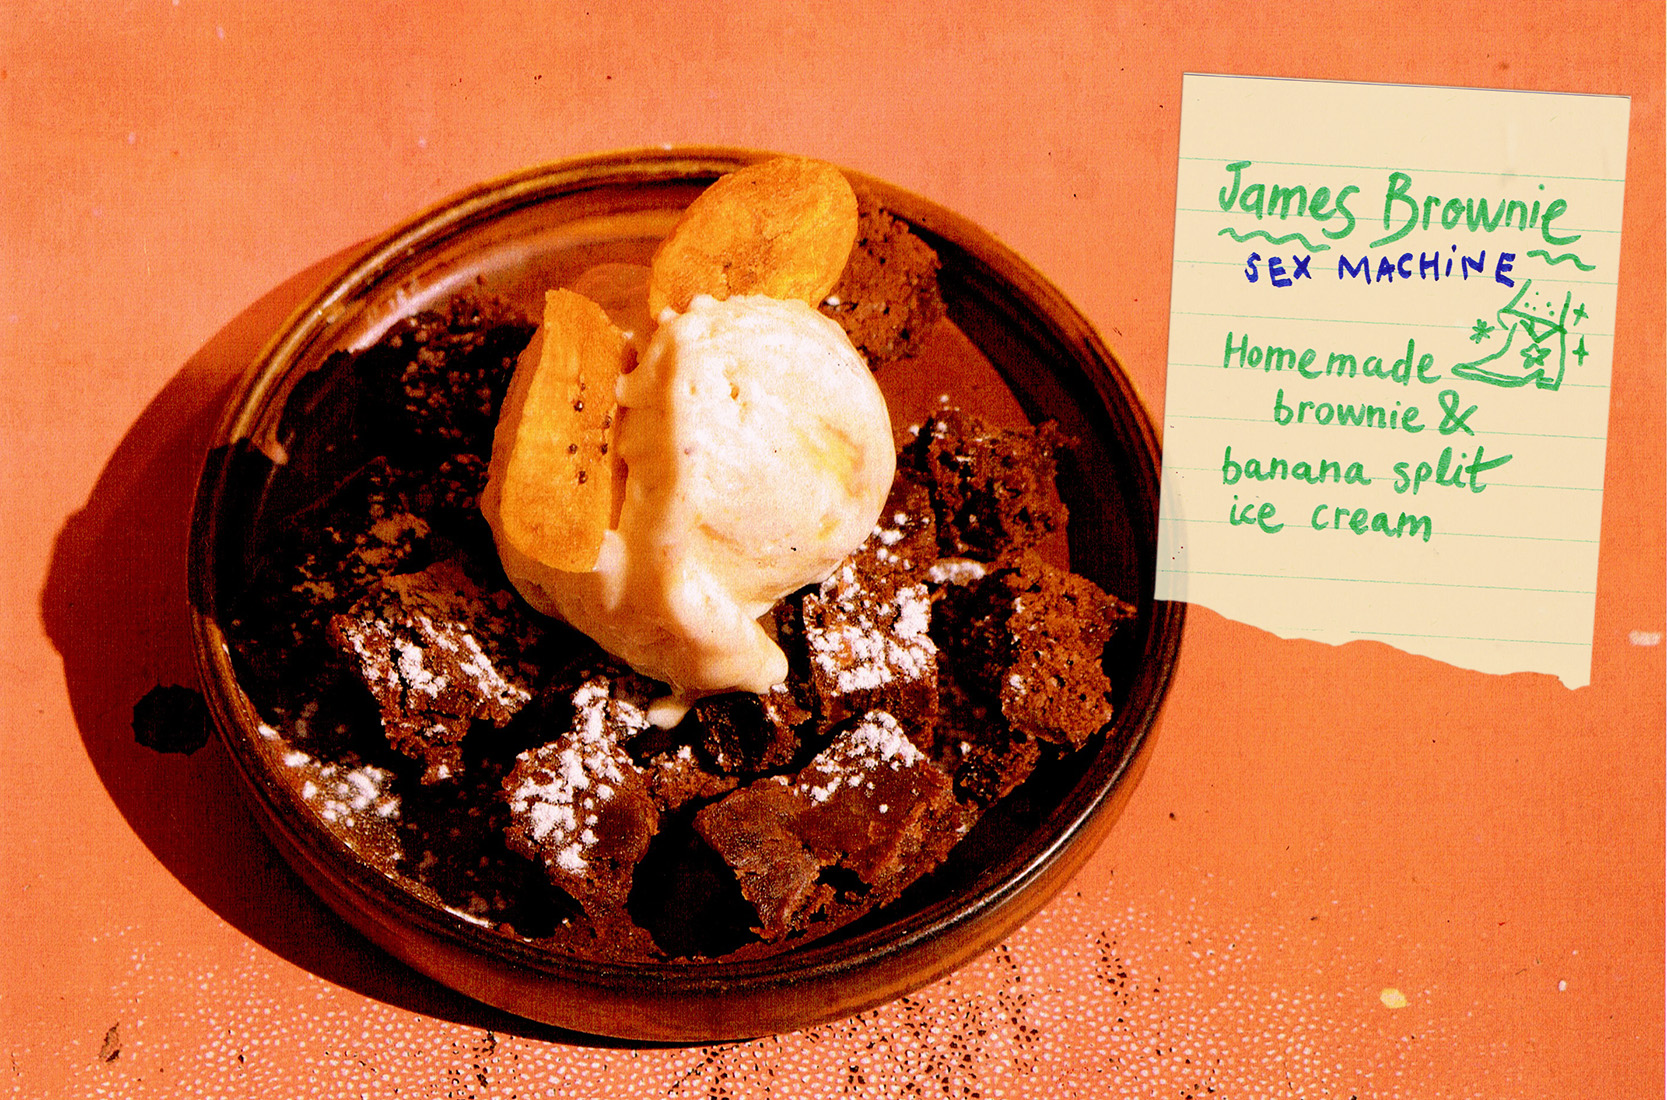 James Brownie
SEX MACHiNE
Homemade
brownie &
banana split
ice cream